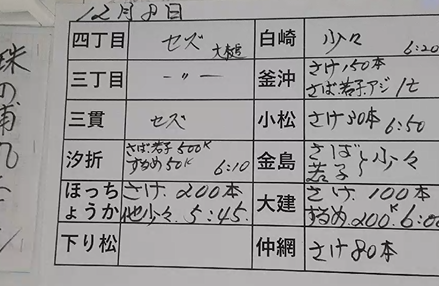 12月8日
四丁目 セズ 白崎 少々 6:20
三丁目 〃 釜沖 さけ150本
さば若子アジ 1t
三貫 セズ 小松 さけ30本 6:50
汐折 さば若子500K 金島 さば 少々
するめ50K 6:10 若子
ほっち さけ.200本 大建 さけ.100本
ょうか 他少々. 5:45. するめ.200K 6:0
下り松 仲網 さけ80本